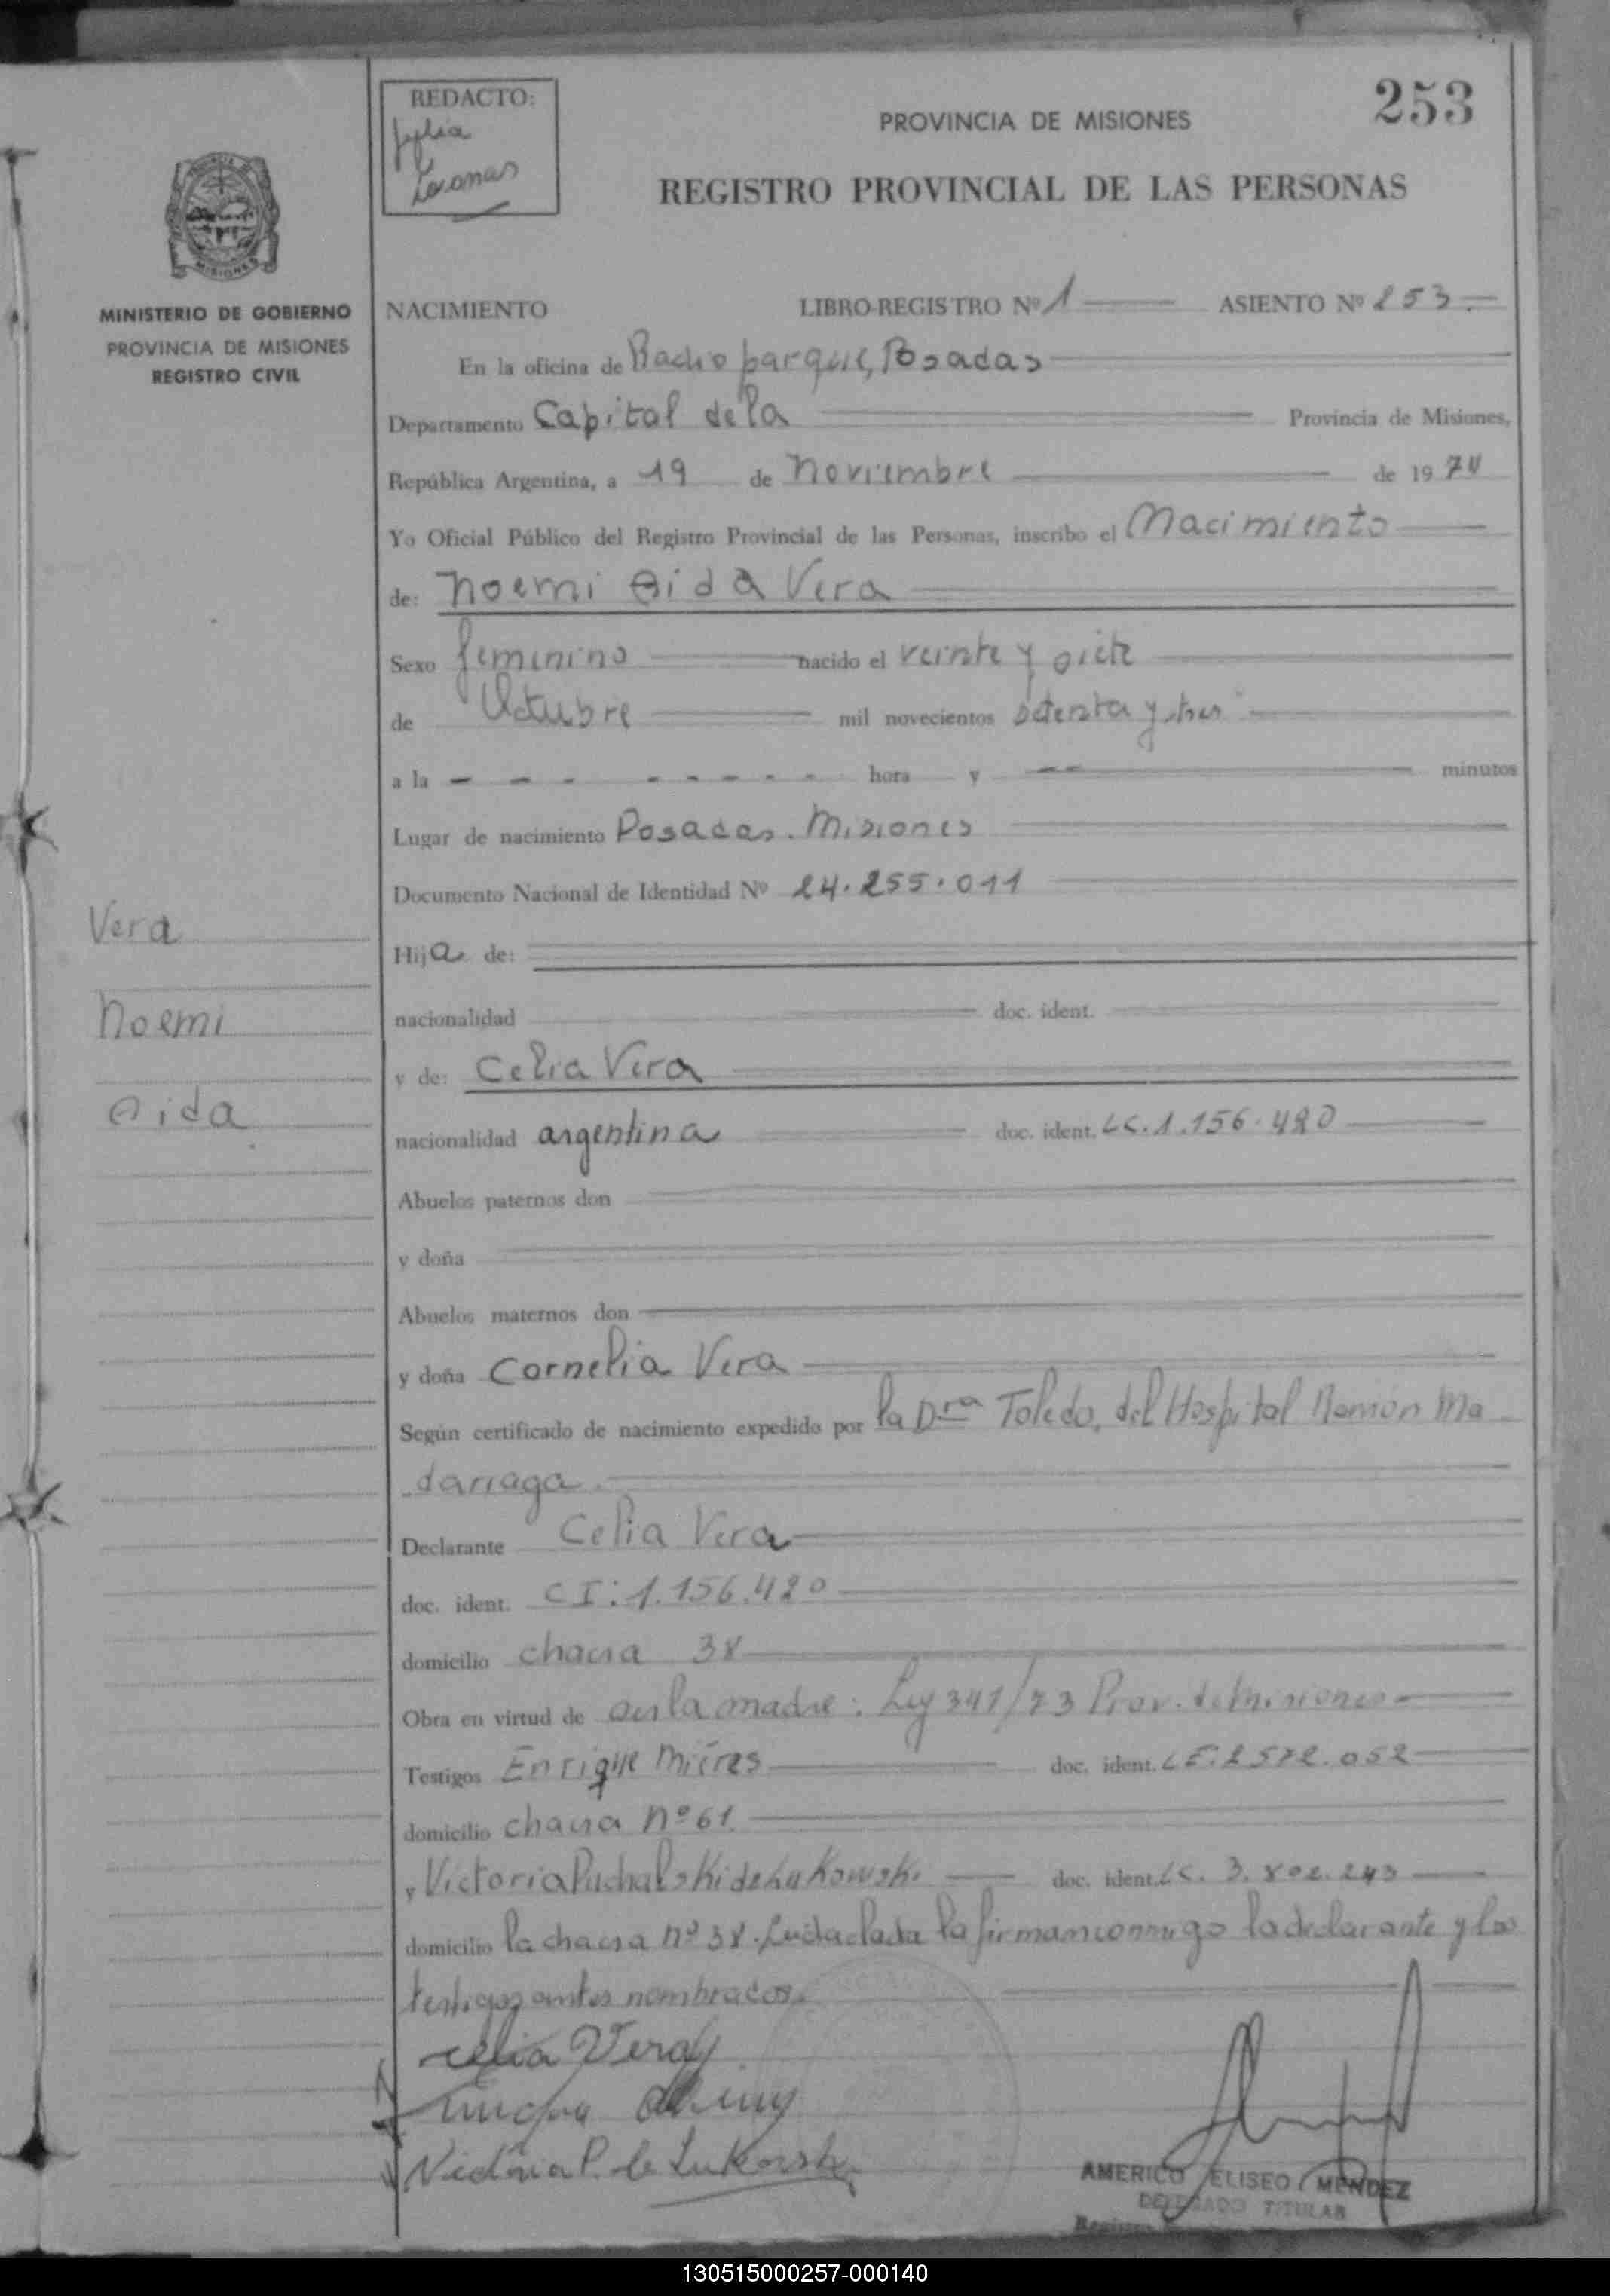 253
REDACTO:
PROVINCIA DE MISIONES
REGISTRO PROVINCIAL DE LAS PERSONAS
MISIONES
MINISTERIO DE GOBIERNO
PROVINCIA DE MISIONES
REGISTRO CIVIL
NACIMIENTO LIBRO-REGISTRO Nº 1 ASIENTO Nº 253.
En la oficina de Radio parque, Posadas
Departamento Capital de la Provincia de Misiones,
República Argentina, a 19 de noviembre de 1974
Yo Oficial Público del Registro Provincial de las Personas, inscribo el Nacimiento
de: Noemi Aida Vera
Sexo femenino nacido el veinte y siete
de Octubre mil novecientos setenta y tres
a la - - - - - - - - - hora y -- minutos
Lugar de nacimiento Posadas. Misiones
Documento Nacional de Identidad Nº 24.255.011
Vera
Noemi
Aida
Hija de:
nacionalidad doc. ident.
y de: Celia Vera
nacionalidad argentina doc. ident. LC. 1.156.480
Abuelos paternos don
y doña
Abuelos maternos don
y doña Cornelia Vera
Según certificado de nacimiento expedido por la Dra Toledo, del Hospital Ramón Ma
dariaga.
Declarante Celia Vera
doc. ident. CI: 1.156.480
domicilio chacra 38
Obra en virtud de ser la madre: Ley 341/73 Prov. de Misiones
Testigos Enrique Mieres doc. ident. LE. 2572.052
domicilio chacra nº 61.
y Victoria Puchalski de Lukowski doc. ident. LC. 3.802.243
domicilio la chacra nº 38. Leida el acta la firman conmigo la declarante y los
testigos antes nombrados.
Celia Vera
Victoria P. de Lukowski
AMERICO ELISEO MENDEZ
DELEGADO TITULAR
130515000257-000140